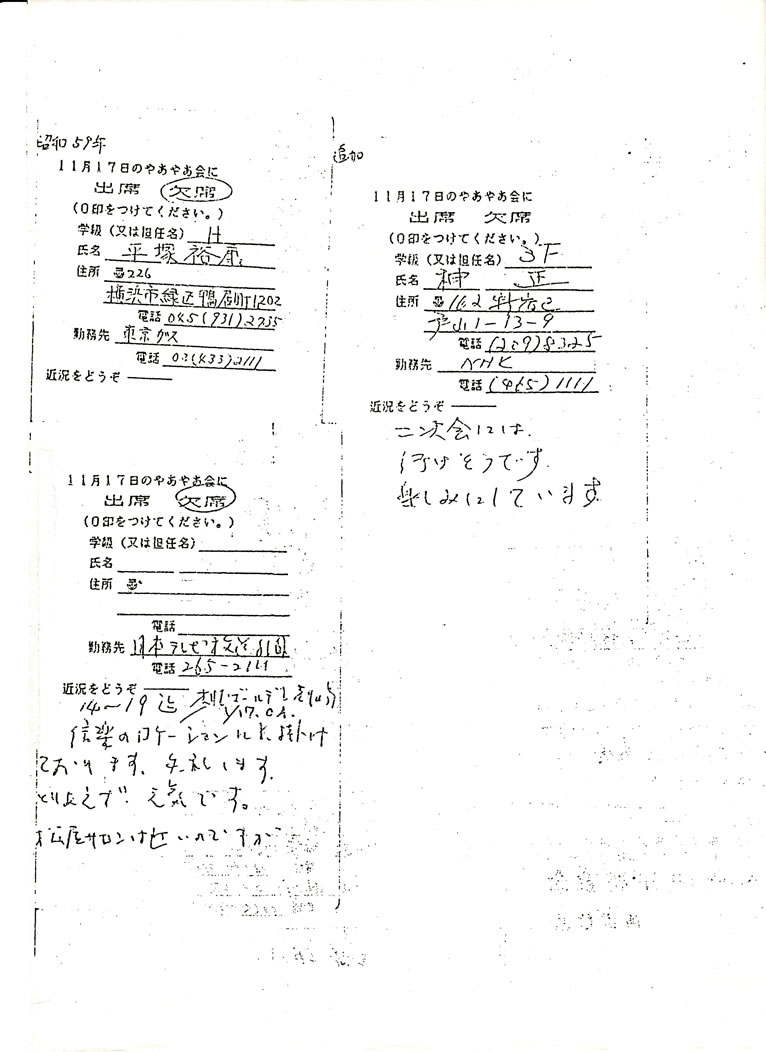 昭和59年
11月17日のやあやあ会に
出席 欠席
(○印をつけてください。)
学級(又は担任名) H
氏名 平塚裕康
住所 〒226
横浜市緑区鴨居町1202
電話 045(931)2735
勤務先 東京ガス
電話 03(433)2111
近況をどうぞ
11月17日のやあやあ会に
出席 欠席
(○印をつけてください。)
学級(又は担任名)
氏名
住所 〒
電話
勤務先 日本テレビ放送
電話 265-2111
近況をどうぞ
14〜19迄
信楽のロケーションに出掛け
ております。失礼します。
とりあえず元気です。
追加
11月17日のやあやあ会に
出席 欠席
(○印をつけてください。)
学級(又は担任名) 3F
氏名 正
住所 〒162 新宿区
戸山1-13-9
電話 (209)8325
勤務先 NHK
電話 (465)1111
近況をどうぞ
二次会には
行けそうです。
楽しみにしています